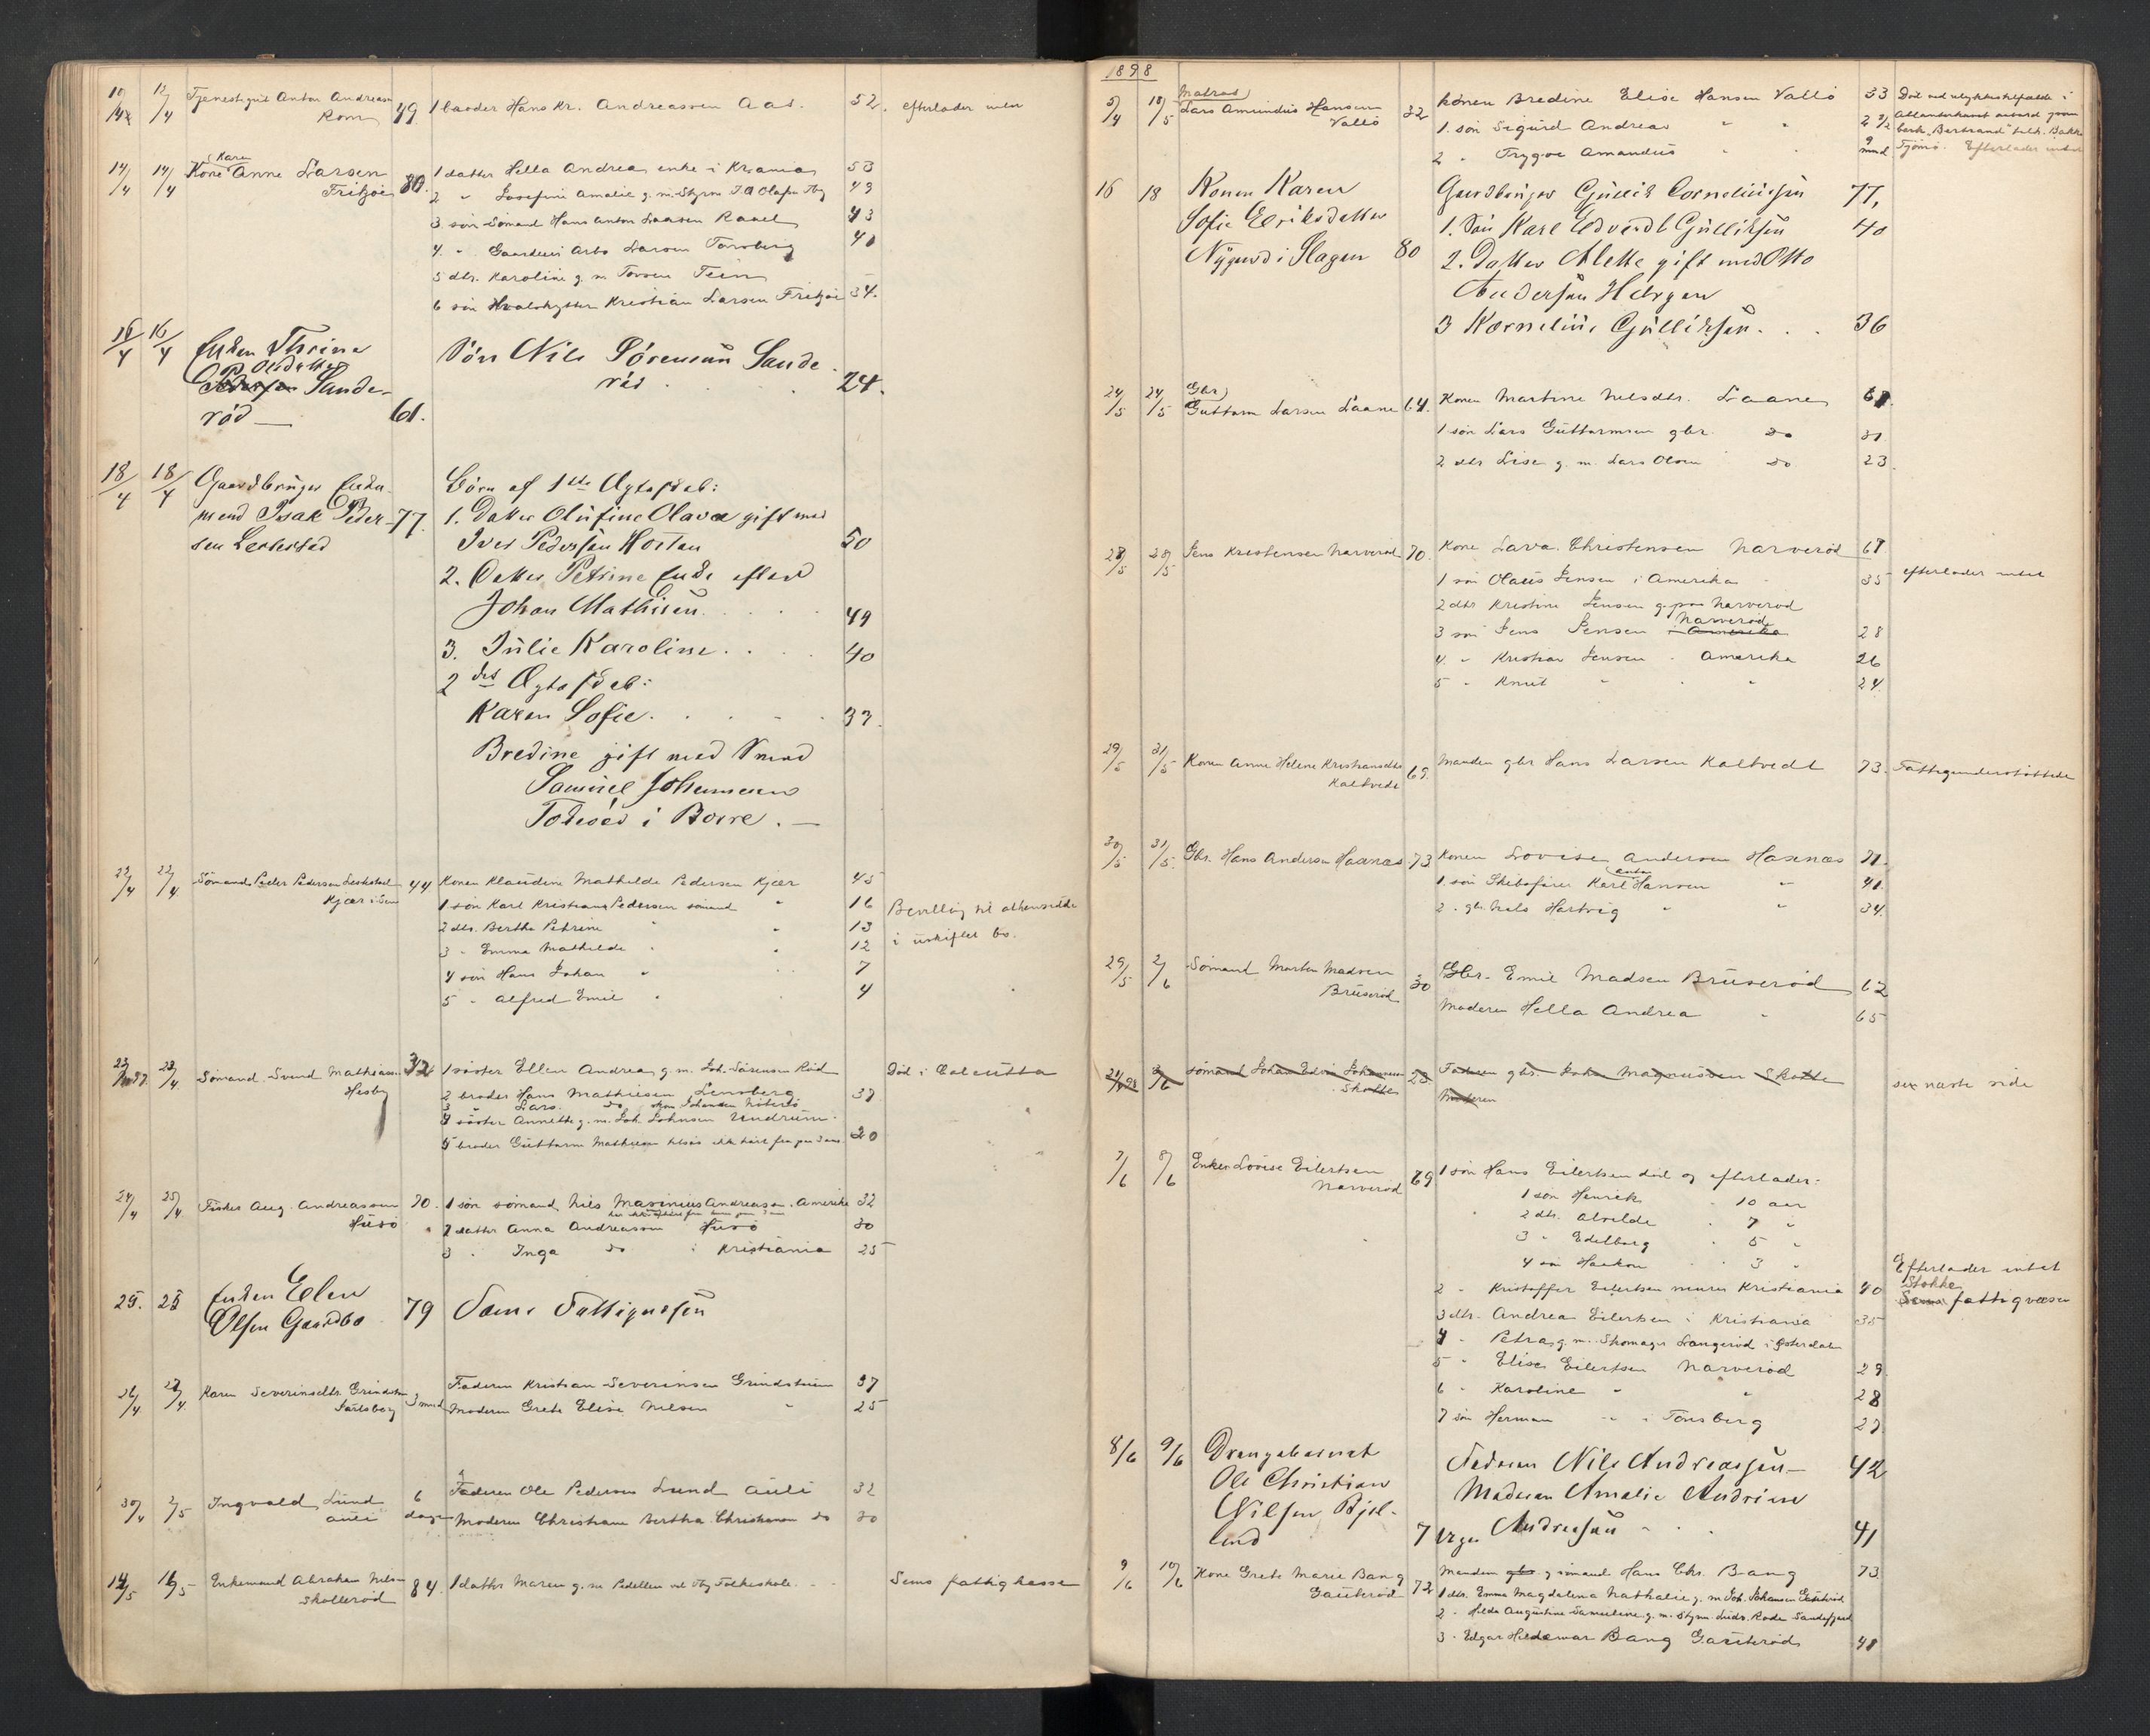 10/4 12/4 Tjenestegut Anton Andreasen 49 1 broder Hans Kr. Andreassen Aas. 52. efterlader intet
Rom
14/4 14/4 Kone Karen Anne Larsen 80. 1 datter Hella Andrea enke i Krania 53
Fritzøe 2 " Josefine Amalie g. m. Styrm. Olsen Tbg 49
3 søn Sömand Hans Anton Larsen Raael 43
4. " Arbo Larsen Tönsberg 40
5 dtr. Karoline g. m.
6 søn Hvalskytter Kristian Larsen Fritzøe 34.
16/4 16/4 Enken Thrine Sön Nils Sörensen Sande-
Olsdatter röd 24.
Pedersen Sande-
röd 61.
18/4 18/4 Gaardbruger Enke- Börn af 1ste Ægteskab:
mand Isak Peder- 77. 1. Datter Olufine Olava gift med
sen Lerkestad Iver Pedersen Horten 50
2. Datter Petrine Enke efter
Johan Mathisen. 49
3. Julie Karoline. 40
2det Ægteskab:
Karen Sofie. 33.
Bredine gift med Smed
Samuel Johannesen
i Borre.
22/4 22/4 Sömand Peder Pedersen 44 Konen Klaudine Mathilde Pedersen Kjær 45
Kjær i Sem 1 søn Karl Kristian Pedersen sömand " 16 Bevilling til at hensidde
2 dtr. Berthe Petrine " " 13 i uskiftet bo.
3 " Emma Mathilde " 12
4 søn Hans Johan " 7
5 " Alfred Emil " 4
23/4 Sömand Svend Mathiasen 32 1 söster Ellen Andrea g. m. Joh. Sörensen Röd Död i Calcutta
Hesby 2 broder Hans Mathiesen Lensberg 37
3 " Lars. do
4 söster Annette g. m. Joh. Johnsen Undrum
5 broder Guttorm Mathiesen 20
24/4 25/4 Fisker Aug. Andreassen 70. 1 søn sömand Nils Maximius Andreassen. Amerika 32
Husö 2 datter Anna Andreassen Husö 30
3 " Inga do i Kristiania 25
25. 25 Enken Elen 79 Sems Fattigvæsen
Olsen Gaardbo
26/4 27/4 Karen Severinsdtr. Grindstuen 3 mnd Faderen Kristian Severinsen Grindstuen 37
Jarlsberg Moderen Grete Elise Nilsen " 25
30/4 2/5 Ingvald Lund 6 Faderen Ole Pedersen Lund Auli 32
Auli dage Moderen Christiane Bertha Christiansen do 30
14/5 16/5 Enkemand Abraham Nilsen 84. 1 datter Maren g. m. Pedellen ved Tbg Folkeskole. Sems fattigkasse
Skallerød
1898
5/4 18/5 Matros Lars Amundus Hansen 32 Konen Bredine Elise Hansen Vallö 33 Död ved ulykkestilfælde i
Vallö 1. søn Sigurd Andreas " " 2 1/2 Atlanterhavet ombord paa
2 " Trygve Amandus " " 9 mnd bark "Bertrand" Tjömö. Efterlader intet
16 18 Konen Karen Gaardbruger Gullik Corneliussen 77,
Sofie Eriksdatter 1. Sön Karl Edvard Gulliksen 40
Nygaard i Slagen 80 2. Datter Alette gift med Otto
Andersen
3 Kornelius Gulliksen. 36
24/5 24/5 Gbr. Guttorm Larsen Laane 64. Konen Martine Nelsdtr. Laane 61.
1 søn Lars Guttormsen gbr. do 31
2 dtr Lise g. m. Lars Olsen do 23
28/5 28/5 Jens Kristensen Narveröd 70. Kone Lava Christensen Narveröd 67
1 søn Olaus Jensen i Amerika 35 efterlader intet
2 dtr Kristine Jensen g. paa Narveröd
3 søn Jens Jensen i Amerika Narveröd 28
4 " Kristian Jensen Amerika 26
5 " Knut " " 24.
29/5 31/5 Konen Anne Helene Kristiansdtr 69. Manden gbr Hans Larsen Kaltvedt 73. Fattigunderstöttede
Kaltvedt
30/5 31/5 Gbr. Hans Andersen Haxnæs 73 Konen Lovise Andersen Haxnæs 71.
1. søn Skibsförer Karl Anton Hansen " 41.
2. gbr. Nils Hartvig " " 34.
29/5 2/6 Sömand Morten Madsen 30 Gbr. Emil Madsen Bruseröd 62
Bruseröd Moderen Hella Andrea " 65
2/6 Sömand Johan Edvin Johannesen 23. Faderen gbr. Johan Magnussen Skatte se næste side
Skatte Moderen
7/6 8/6 Enken Lovise Eilertsen 69 1 søn Hans Eilertsen död og efterlader:
Narveröd 1 søn Henrik " 10 aar
2 dtr. Alvilde " 7 "
3 " Edelborg " 5 "
4 søn Haakon " 3 " Efterlader intet
2 " Kristoffer Eilertsen murer Kristiania 40 Stokke
3 dtr. Andrea Eilertsen i Kristiania 35 Sems fattigvæsen
4 " Petra g. m. Skomager Langeröd i Østerdalen
5 " Elise Eilertsen Narveröd 29
6 " Karoline " " 28
7 søn Herman " i Tönsberg 23
8/6 9/6 Drengebarnet Faderen Nils Andreassen 42
Ole Christian Moderen Amalie Andrine
Nilsen Bjel-
land 7 Uger Andreassen 41
9/6 10/6 Kone Grete Marie Bang 72 Manden gbr. og sömand Hans Chr. Bang 73
Gauteröd 1 dtr. Emma Magdalena Nathalie g. m Joh. Johansen Gauteröd
2 " Hilda Augustine Samueline g. m. Styrm. Ludv. Rode Sandefjord
3 " Edgar Hildemar Bang Gauteröd 48